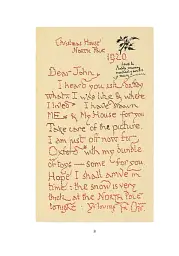 Christmas House
North Pole
1920
Dear John,
I heard you ask daddy
what I was like & where
I lived. I have drawn
ME & My House for you
Take care of the picture.
I am just off now for
Oxford with my bundle
of toys — some for you
Hope I shall arrive in
time: the snow is very
thick at the NORTH POLE
tonight. Yr loving Fr. Chr.